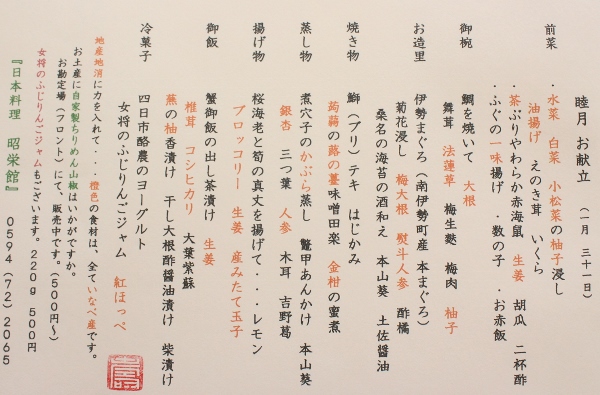 睦月 お献立 (一月 三十一日)
前菜
・水菜 白菜 小松菜の柚子浸し
油揚げ えのき茸 いくら
・茶ぶりやわらか赤海鼠 生姜 胡瓜 二杯酢
・ふぐの一味揚げ ・数の子 ・お赤飯
御椀
鯛を焼いて 大根
舞茸 法蓮草 梅生麩 梅肉 柚子
お造里
伊勢まぐろ(南伊勢町産 本まぐろ)
菊花浸し 梅大根 熨斗人参 酢橘
桑名の海苔の酒和え 本山葵 土佐醤油
焼き物
鰤(ブリ)テキ はじかみ
蒟蒻の蕗の薹味噌田楽 金柑の蜜煮
蒸し物
煮穴子のかぶら蒸し 鼈甲あんかけ 本山葵
銀杏 三つ葉 人参 木耳 吉野葛
揚げ物
桜海老と筍の真丈を揚げて・・・レモン
ブロッコリー 生姜 産みたて玉子
御飯
蟹御飯の出し茶漬け 生姜
椎茸 コシヒカリ 大葉紫蘇
蕪の柚香漬け 干し大根酢醤油漬け 柴漬け
冷菓子
四日市酪農のヨーグルト
女将のふじりんごジャム 紅ほっぺ
地産地消に力を入れて・・・橙色の食材は、全ていなべ産です。
お土産に自家製ちりめん山椒はいかがですか。
お勘定場(フロント)にて、販売中です。(500円~)
女将のふじりんごジャムもございます。220g 500円
『日本料理 昭栄館』 0594(72)2065